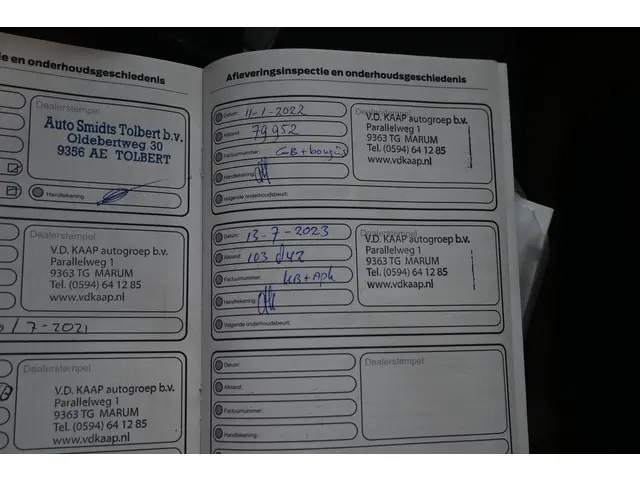 e en onderhoudsgeschiedenis
Dealerstempel
Auto Smidts Tolbert b.v.
Oldebertweg 30
9356 AE TOLBERT
Handtekening:
Dealerstempel
V.D. KAAP autogroep b.v.
Parallelweg 1
9363 TG MARUM
Tel. (0594) 64 12 85
www.vdkaap.nl
/7-2021
Dealerstempel
V.D. KAAP autogroep b.v.
Parallelweg 1
9363 TG MARUM
Tel. (0594) 64 12 85
www.vdkaap.nl
Afleveringsinspectie en onderhoudsgeschiedenis
Datum: 11-1-2022
Afstand: 79952
Factuurnummer: GB + bougies
Handtekening:
Volgende onderhoudsbeurt:
Dealerstempel
V.D. KAAP autogroep b.v.
Parallelweg 1
9363 TG MARUM
Tel. (0594) 64 12 85
www.vdkaap.nl
Datum: 13-7-2023
Afstand: 103
Factuurnummer: KB + Apk
Handtekening:
Volgende onderhoudsbeurt:
Dealerstempel
V.D. KAAP autogroep b.v.
Parallelweg 1
9363 TG MARUM
Tel. (0594) 64 12 85
www.vdkaap.nl
Datum:
Afstand:
Factuurnummer:
Handtekening:
Dealerstempel